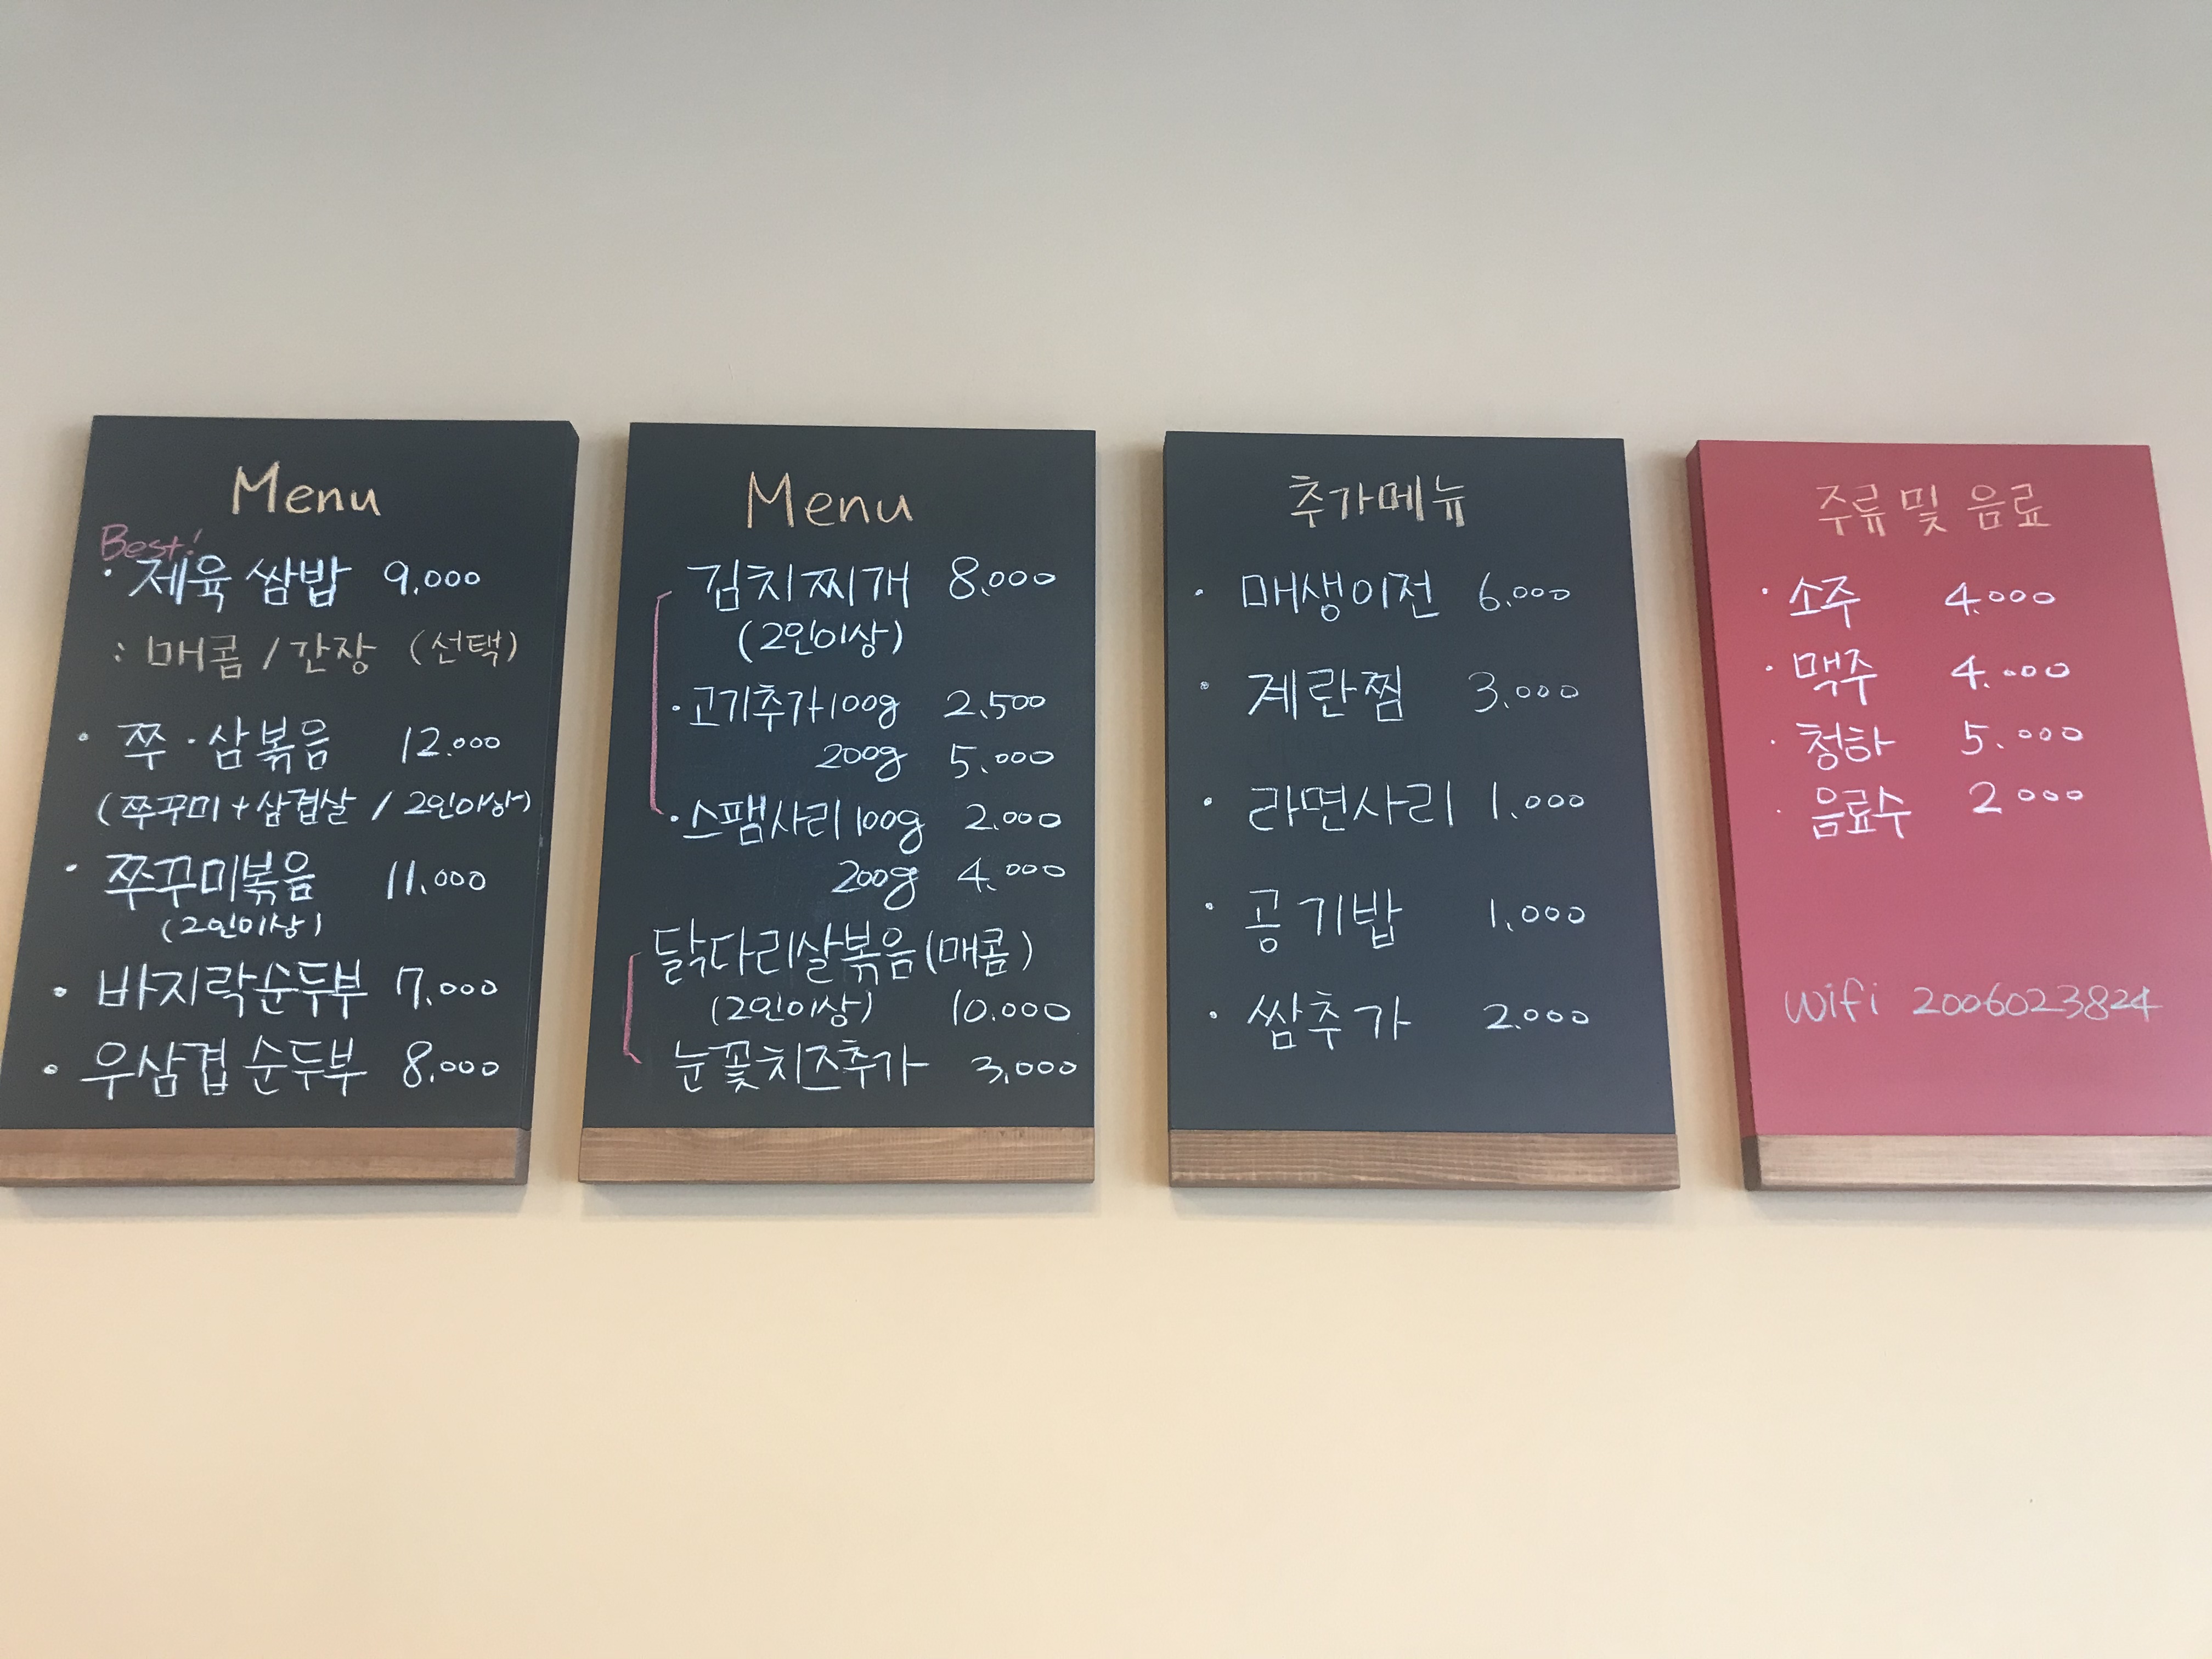 Menu
Best!
· 제육 쌈밥 9.000
: 매콤 / 간장 (선택)
· 쭈·삼볶음 12.000
(쭈꾸미+삼겹살 / 2인이상)
· 쭈꾸미볶음 11.000
(2인이상)
· 바지락순두부 7.000
· 우삼겹 순두부 8.000
Menu
김치찌개 8.000
(2인이상)
· 고기추가100g 2.500
200g 5.000
· 스팸사리100g 2.000
200g 4.000
닭다리살볶음(매콤)
(2인이상) 10.000
눈꽃치즈추가 3,000
추가메뉴
· 매생이전 6.000
· 계란찜 3.000
· 라면사리 1.000
· 공기밥 1.000
· 쌈추가 2.000
주류 및 음료
· 소주 4.000
· 맥주 4.000
· 청하 5.000
· 음료수 2000
Wifi 2006023824